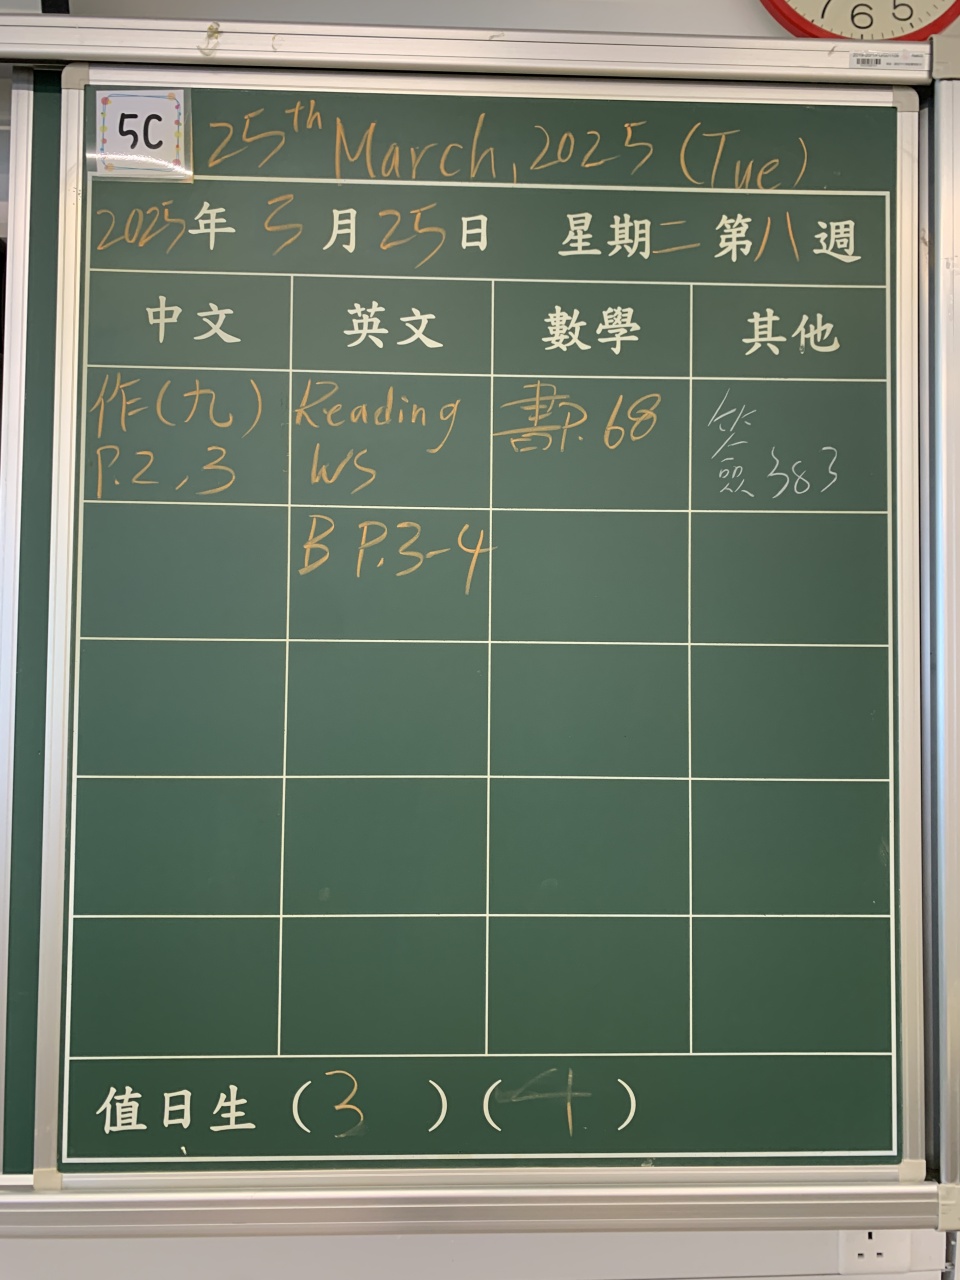 5C
25th March, 2025 (Tue)
2025年 3月25日 星期二 第八週
中文 英文 數學 其他
作(九) Reading 書P.68 簽383
P.2,3 WS
B P.3-4
值日生 (3) (4)
7 6 5